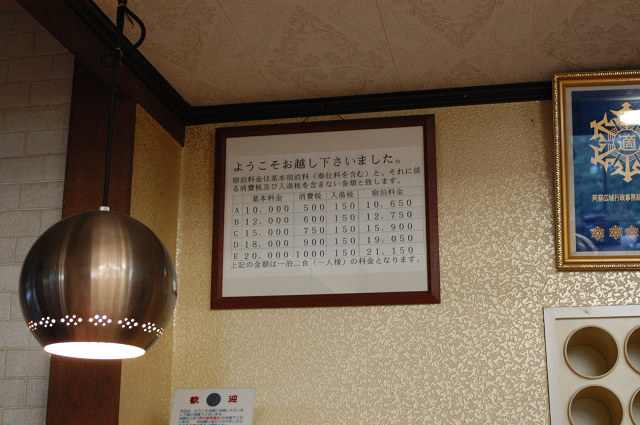 ようこそお越し下さいました。
宿泊料金は基本宿泊料(奉仕料を含む)と、それに係
る消費税及び入湯税を含まない金額と致します。
基本料金 消費税 入湯税 宿泊料金
A 10,000 500 150 10,650
B 12,000 600 150 12,750
C 15,000 750 150 15,900
D 18,000 900 150 19,050
E 20,000 1000 150 21,150
上記の金額は一泊二食(一人様)の料金となります。
適
阿蘇広域行政事務組
歓迎